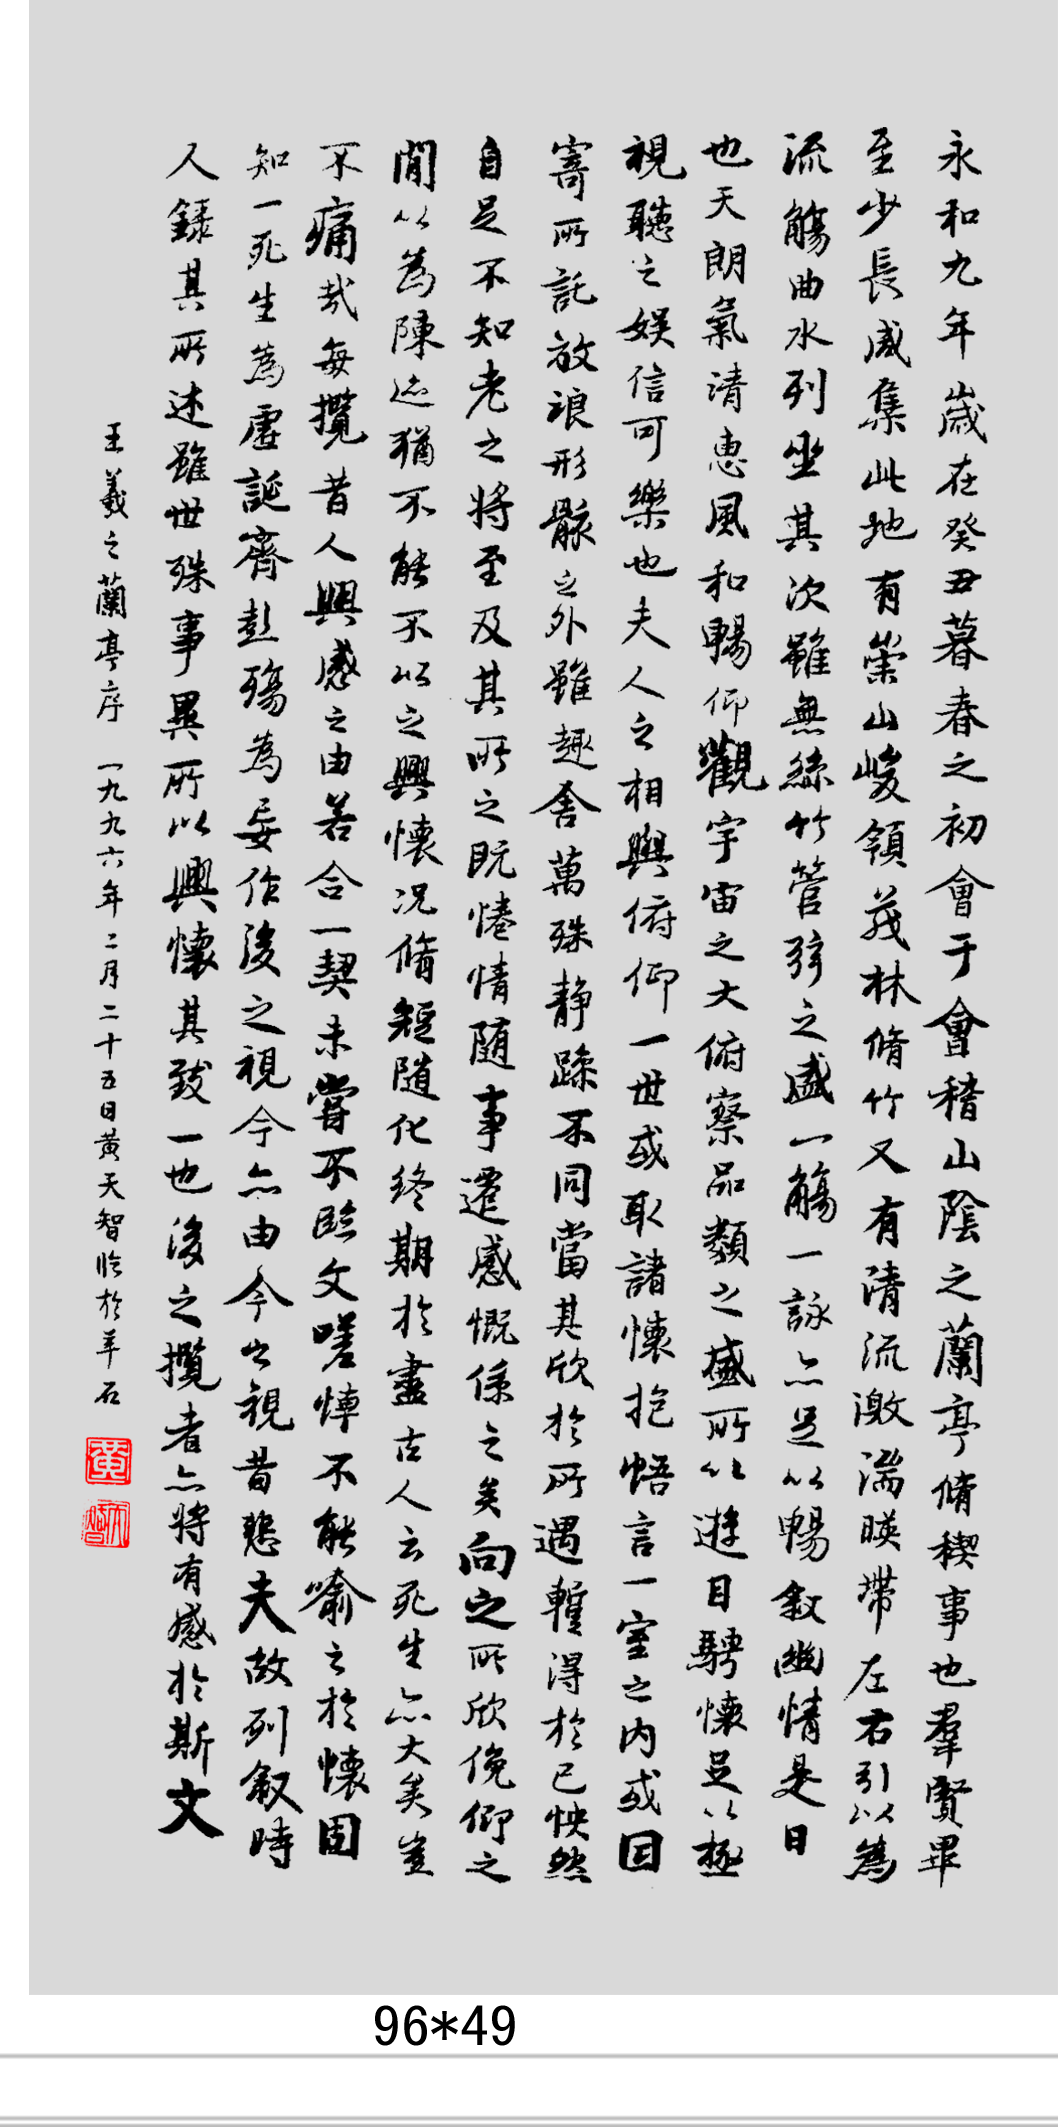 永和九年歲在癸丑暮春之初會于會稽山陰之蘭亭脩稧事也羣賢畢
至少長咸集此地有崇山峻領茂林脩竹又有清流激湍暎帶左右引以為
流觴曲水列坐其次雖無絲竹管弦之盛一觴一詠亦足以暢敘幽情是日
也天朗氣清惠風和暢仰觀宇宙之大俯察品類之盛所以遊目騁懷足以極
視聽之娛信可樂也夫人之相與俯仰一世或取諸懷抱悟言一室之内或因
寄所託放浪形骸之外雖趣舍萬殊静躁不同當其欣於所遇暫得於己怏然
自足不知老之將至及其所之既惓情随事遷感慨係之矣向之所欣俛仰之
閒以為陳迹猶不能不以之興懷况脩短随化終期於盡古人云死生亦大矣豈
不痛哉每攬昔人興感之由若合一契未嘗不臨文嗟悼不能喻之於懷固
知一死生為虚誕齊彭殤為妄作後之視今亦由今之視昔悲夫故列叙時
人錄其所述雖世殊事異所以興懷其致一也後之攬者亦將有感於斯文
王羲之蘭亭序 一九九六年二月二十五日黄天智臨於羊石
黄
天智
96*49